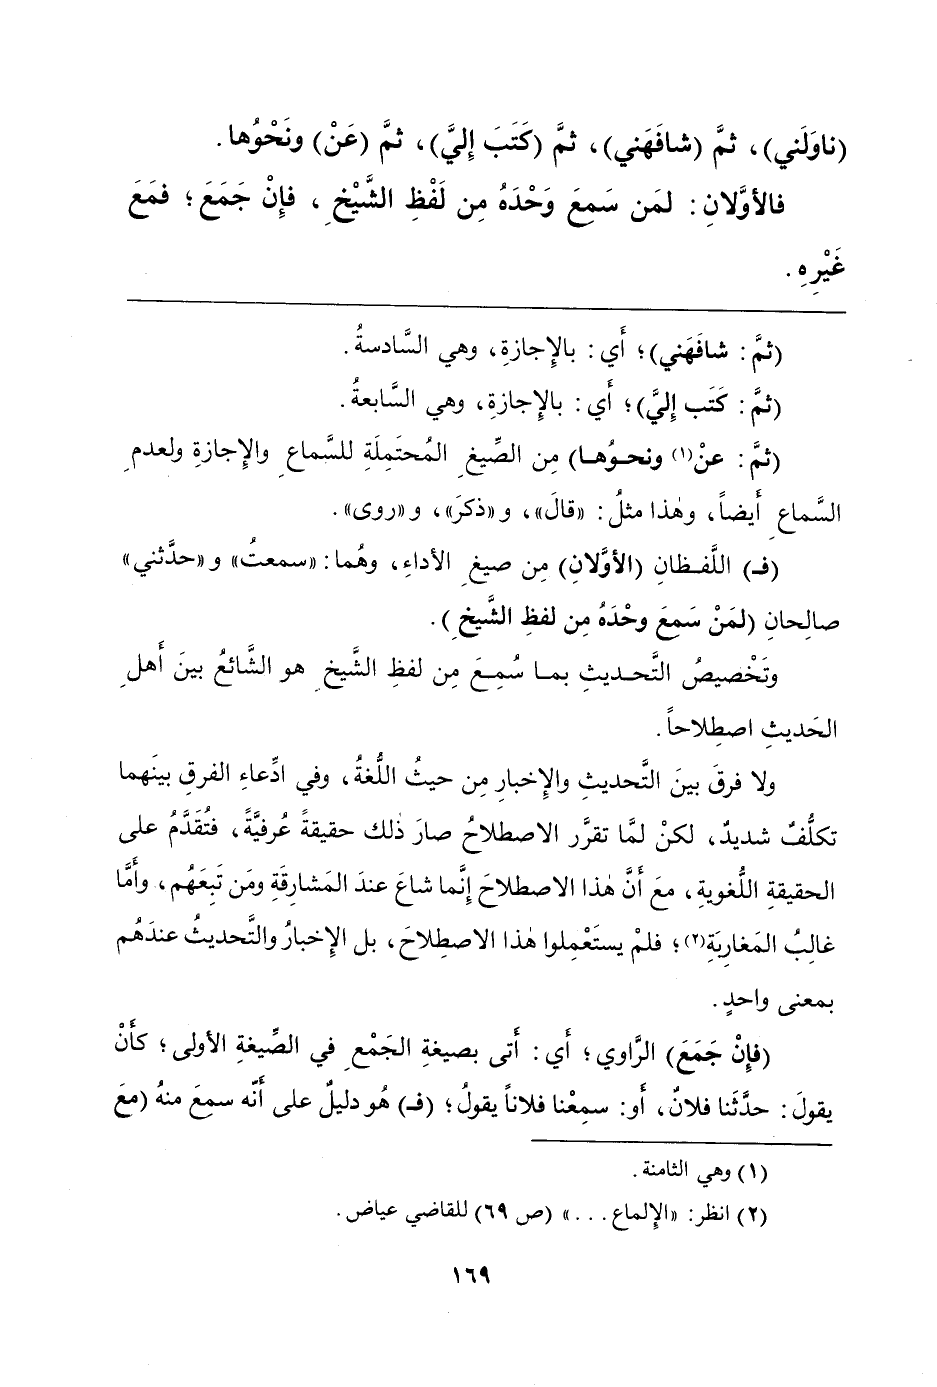 (ناوَلَني)، ثمَّ (شافَهَني)، ثمَّ (كَتَبَ إِليَّ)، ثمَّ (عَنْ) ونَحْوُها.
فالأوَّلانِ: لمَن سَمِعَ وَحْدَهُ مِن لَفْظِ الشَّيْخِ، فإِنْ جَمَعَ؛ فمَعَ
غَيْرِهِ.
(ثمَّ: شافَهَني)؛ أَي: بالإِجازةِ، وهي السَّادسةُ.
(ثمَّ: كَتَب إِليَّ)؛ أَي: بالإِجازةِ، وهي السَّابعةُ.
(ثمَّ: عنْ(١) ونحوُها) مِن الصِّيغِ المُحتَمِلَةِ للسَّماعِ والإِجازةِ ولعدمِ
السَّماعِ أَيضاً، وهٰذا مثلُ: «قالَ»، و«ذكرَ»، و«روى».
(فـ) اللَّفظانِ (الأوَّلانِ) مِن صيغِ الأداءِ، وهُما: «سمعتُ» و«حدَّثني»
صالِحانِ (لمَنْ سَمِعَ وحْدَهُ مِن لفظِ الشَّيخِ).
وتَخْصيصُ التَّحديثِ بما سُمِعَ مِن لفظِ الشَّيخِ هو الشَّائعُ بينَ أَهلِ
الحَديثِ اصطِلاحاً.
ولا فرقَ بينَ التَّحديثِ والإِخبارِ مِن حيثُ اللُّغةُ، وفي ادِّعاءِ الفرقِ بينَهما
تكلُّفٌ شديدٌ، لكنْ لمَّا تقرَّر الاصطلاحُ صارَ ذٰلك حقيقةً عُرفيَّةً، فتُقَدَّمُ على
الحقيقةِ اللُّغويةِ، معَ أَنَّ هٰذا الاصطلاحَ إِنَّما شاعَ عندَ المَشارِقَةِ ومَن تَبِعَهُم، وأَمَّا
غالِبُ المَغارِبَةِ(٢)؛ فلمْ يستَعْمِلوا هٰذا الاصطِلاحَ، بل الإِخبارُ والتَّحديثُ عندَهُم
بمعنى واحدٍ.
(فإِنْ جَمَعَ) الرَّاوي؛ أَي: أَتى بصيغةِ الجَمْعِ في الصِّيغةِ الأولى؛ كأَنْ
يقولَ: حدَّثَنا فلانٌ، أَو: سمِعْنا فلاناً يقولُ؛ (فـ) هُو دليلٌ على أَنَّه سمِعَ منهُ (معَ
(١) وهي الثامنة.
(٢) انظر: «الإِلماع...» (ص ٦٩) للقاضي عياض.
١٦٩